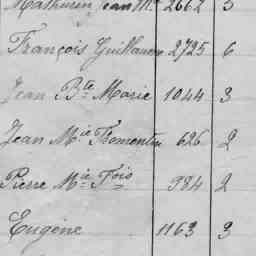 Mathurin Jean M. 2662 3
François Guillaume 2725 6
Jean Bte Marie 1044 3
Jean Mie Fromentin 626 2
Pierre Mie Fois 984 2
Eugène 1163 3